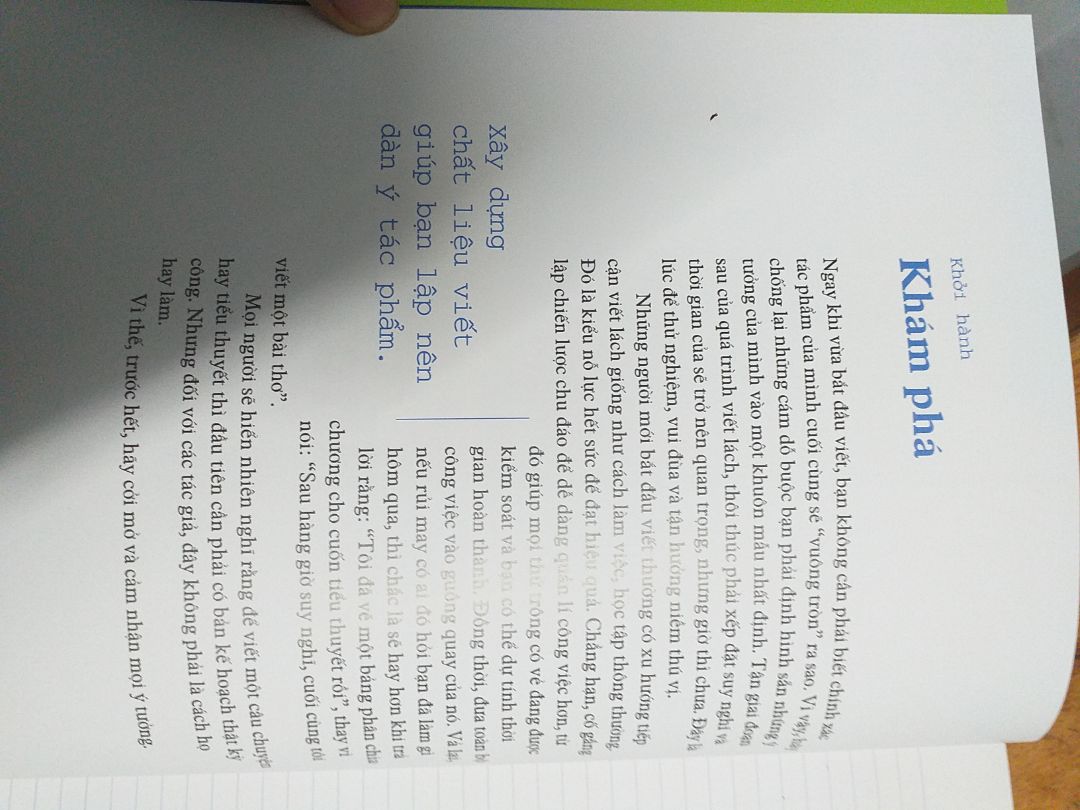 Khởi hành
Khám phá
Ngay khi vừa bắt đầu viết, bạn không cần phải biết chính xác
tác phẩm của mình cuối cùng sẽ “vuông tròn” ra sao. Vì vậy, hãy
chống lại những cám dỗ buộc bạn phải định hình sẵn những ý
tưởng của mình vào một khuôn mẫu nhất định. Tận giai đoạn
sau của quá trình viết lách, thôi thúc phải xếp đặt suy nghĩ và
thời gian của sẽ trở nên quan trọng, nhưng giờ thì chưa. Đây là
lúc để thử nghiệm, vui đùa và tận hưởng niềm thú vị.
Những người mới bắt đầu viết thường có xu hướng tiếp
cận viết lách giống như cách làm việc, học tập thông thường.
Đó là kiểu nỗ lực hết sức để đạt hiệu quả. Chẳng hạn, cố gắng
lập chiến lược chu đáo để dễ dàng quản lí công việc hơn, từ
đó giúp mọi thứ trông có vẻ đang được
kiểm soát và bạn có thể dự tính thời
gian hoàn thành. Đồng thời, đưa toàn bộ
công việc vào guồng quay của nó. Vả lại,
nếu rủi may có ai đó hỏi bạn đã làm gì
hôm qua, thì chắc là sẽ hay hơn khi trả
lời rằng: “Tôi đã vẽ một bảng phân chia
chương cho cuốn tiểu thuyết rồi”, thay vì
nói: “Sau hàng giờ suy nghĩ, cuối cùng tôi
viết một bài thơ”.
Xây dựng
chất liệu viết
giúp bạn lập nên
dàn ý tác phẩm.
Mọi người sẽ hiển nhiên nghĩ rằng để viết một câu chuyện
hay tiểu thuyết thì đầu tiên cần phải có bản kế hoạch thật kỳ
công. Nhưng đối với các tác giả, đây không phải là cách họ
hay làm.
Vì thế, trước hết, hãy cởi mở và cảm nhận mọi ý tưởng.